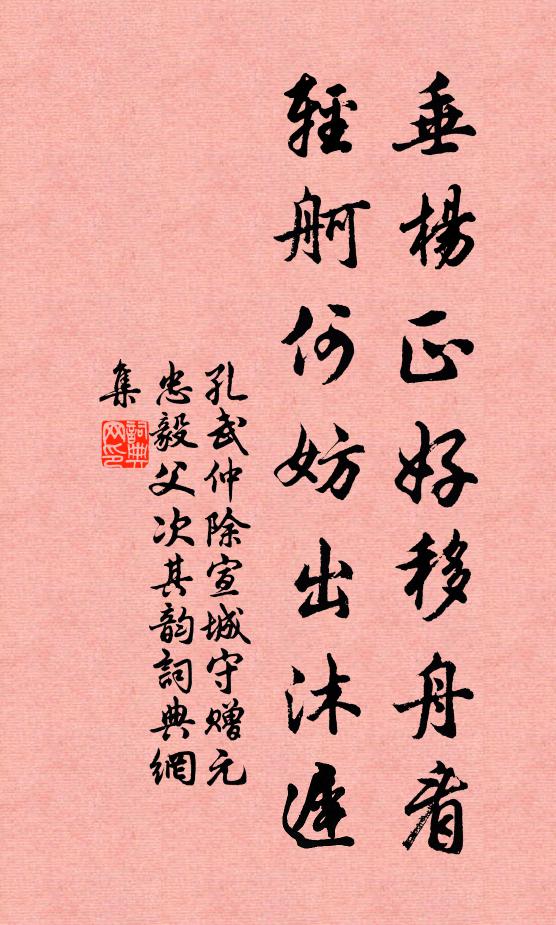 垂楊正好移舟看
輕舸何妨出沐遲
孔武仲除宣城守贈元
忠毅父次其韵詞典網
集
詞典
网印